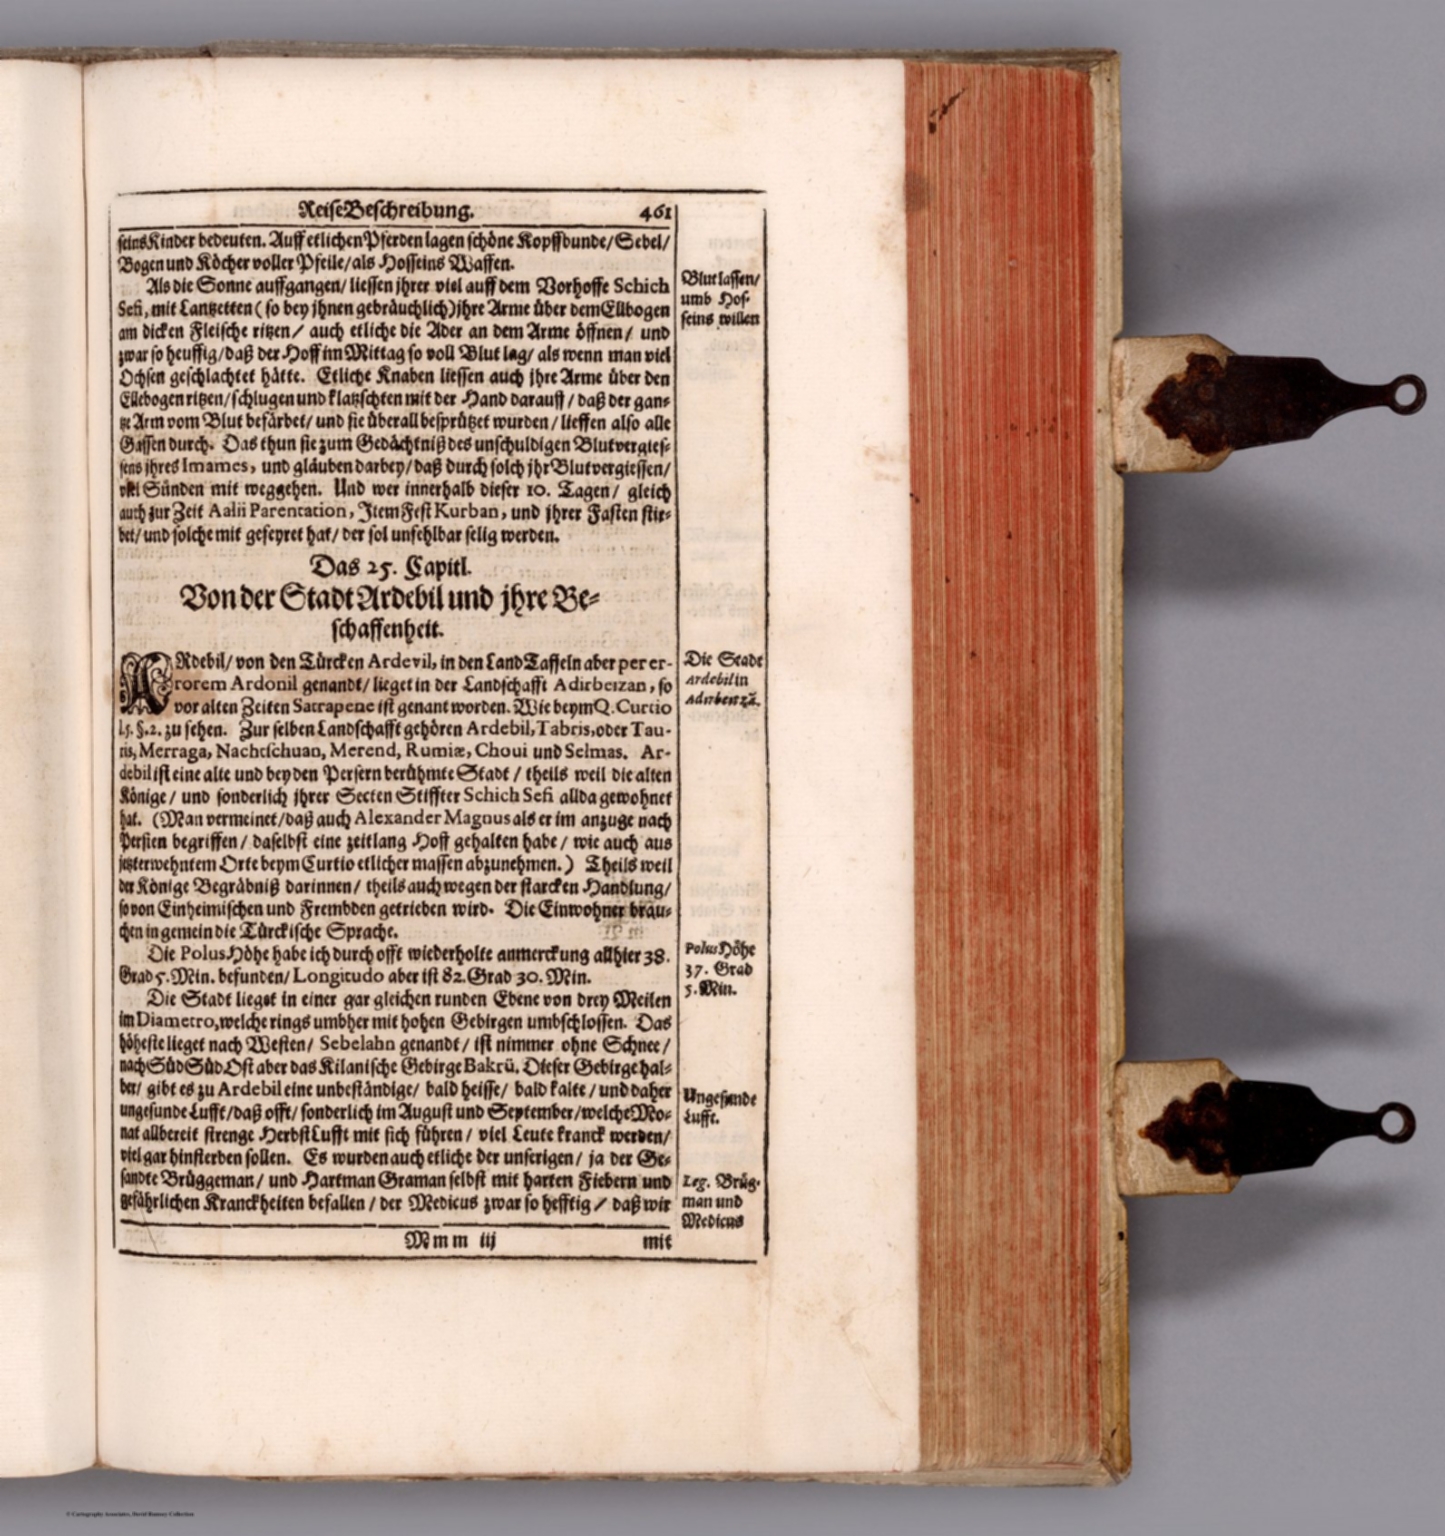 ReiseBeschreibung. 461
seins Kinder bedeuten. Auff etlichen Pferden lagen schöne Kopffbunde/ Sebel/
Bogen und Köcher voller Pfeile/ als Hosseins Waffen.
Als die Sonne auffgangen/ liessen jhrer viel auff dem Vorhoffe Schich
Sefi, mit Lantzetten ( so bey jhnen gebräuchlich) jhre Arme über dem Ellbogen
am dicken Fleische ritzen/ auch etliche die Ader an dem Arme öffnen/ und
zwar so heuffig/ daß der Hoff im Mittag so voll Blut lag/ als wenn man viel
Ochsen geschlachtet hätte. Etliche Knaben liessen auch jhre Arme über den
Ellebogen ritzen/ schlugen und klatzschten mit der Hand darauff/ daß der gan-
tze Arm vom Blut befärbet/ und sie überall besprützet wurden/ lieffen also alle
Gassen durch. Das thun sie zum Gedächtniß des unschuldigen Blutvergies-
sens jhres Imames, und gläuben darbey/ daß durch solch jhr Blutvergiessen/
viel Sünden mit weggehen. Und wer innerhalb dieser 10. Tagen/ gleich
auch zur Zeit Aalii Parentation, Jtem Fest Kurban, und jhrer Fasten stir-
bet/ und solche mit gefeyret hat/ der sol unfehlbar selig werden.
Blutlassen/
umb Hos-
seins willen
Das 25. Capitl.
Von der Stadt Ardebil und jhre Be-
schaffenheit.
ARdebil/ von den Türcken Ardevil, in den Land Taffeln aber per er-
rorem Ardonil genandt/ lieget in der Landschafft Adirbeizan, so
vor alten Zeiten Satrapene ist genant worden. Wie beym Q. Curtio
l.5. §.2. zu sehen. Zur selben Landschafft gehören Ardebil, Tabris, oder Tau-
ris, Merraga, Nachtschuan, Merend, Rumiæ, Choui und Selmas. Ar-
debil ist eine alte und bey den Persern berühmte Stadt/ theils weil die alten
Könige/ und sonderlich jhrer Secten Stiffter Schich Sefi allda gewohnet
hat. (Man vermeinet/ daß auch Alexander Magnus als er im anzuge nach
Persien begriffen/ daselbst eine zeitlang Hoff gehalten habe/ wie auch aus
jetzterwehntem Orte beym Curtio etlicher massen abzunehmen.) Theils weil
der Könige Begräbniß darinnen/ theils auch wegen der starcken Handlung/
so von Einheimischen und Frembden getrieben wird. Die Einwohner brau-
chen in gemein die Türckische Sprache.
Die Stadt
Ardebil in
Adirbeizã.
Die Polus Höhe habe ich durch offt wiederholte anmerckung allhier 38.
Grad 5. Min. befunden/ Longitudo aber ist 82. Grad 30. Min.
Polus Höhe
37. Grad
5. Min.
Die Stadt lieget in einer gar gleichen runden Ebene von drey Meilen
im Diametro, welche rings umbher mit hohen Gebirgen umbschlossen. Das
höheste lieget nach Westen/ Sebelahn genandt/ ist nimmer ohne Schnee/
nach Süd Süd Ost aber das Kilanische Gebirge Bakrü. Dieser Gebirge hal-
ber/ gibt es zu Ardebil eine unbeständige/ bald heisse/ bald kalte/ und daher
ungesunde Lufft/ daß offt/ sonderlich im August und September/ welche Mo-
nat allbereit strenge Herbst Lufft mit sich führen/ viel Leute kranck werden/
viel gar hinsterben sollen. Es wurden auch etliche der unserigen/ ja der Ge-
sandte Brüggeman/ und Hartman Graman selbst mit harten Fiebern und
gefährlichen Kranckheiten befallen/ der Medicus zwar so hefftig/ daß wir
Ungesunde
Lufft.
Leg. Brüg-
man und
Medicus
Mmm iij mit
© Cartography Associates, David Rumsey Collection